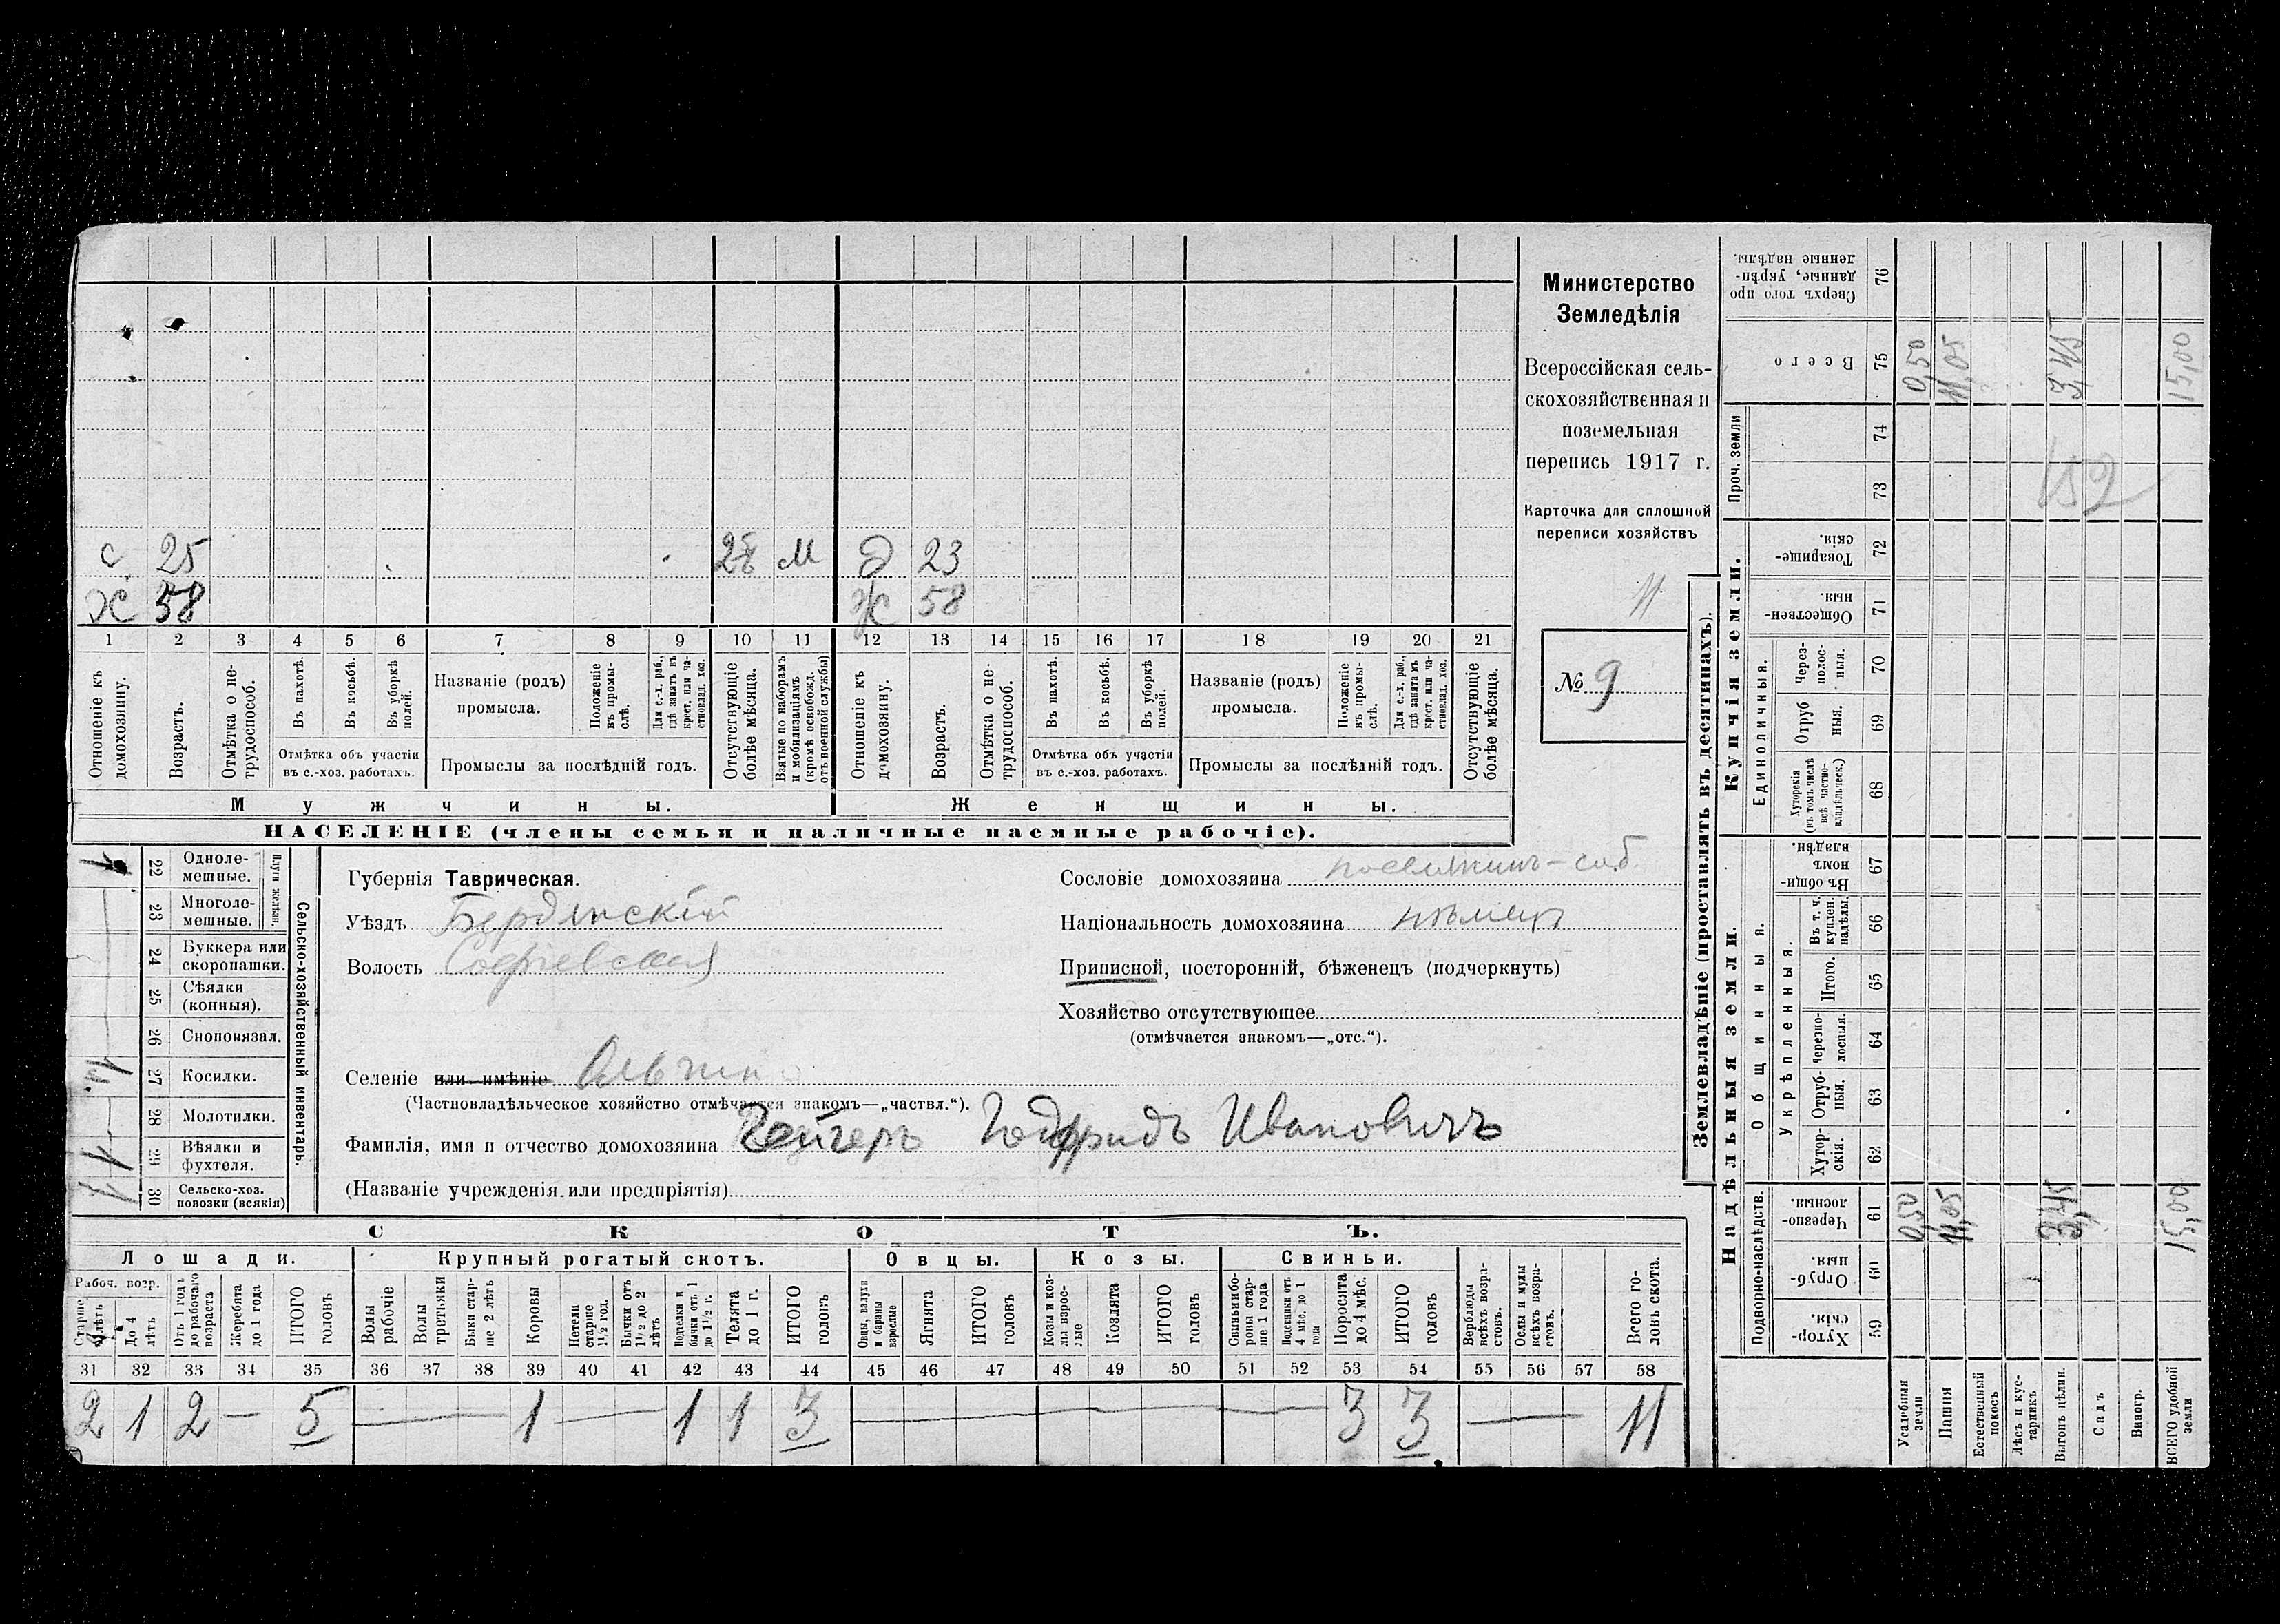 с 25 28 М д 23
Х 58 Ж 58
1 2 3 4 5 6 7 8 9 10 11 12 13 14 15 16 17 18 19 20 21
Отношеніе къ домохозяину.
Возрастъ.
Отмѣтка о не-
трудоспособ.
Въ пахотѣ.
Въ косьбѣ.
Въ уборкѣ
полей.
Отмѣтка объ участіи
въ с.-хоз. работахъ.
Названіе (родъ)
промысла.
Положеніе
въ промы-
слѣ.
Для с.-х. раб.,
гдѣ занятъ въ
крест. или ча-
стновлад. хоз.
Промыслы за послѣдній годъ.
Отсутствующіе
болѣе мѣсяца.
Взятые по наборамъ
и мобилизаціямъ
(кромѣ освобожд.
отъ военной службы)
Отношеніе къ
домохозяину.
Возрастъ.
Отмѣтка о не-
трудоспособ.
Въ пахотѣ.
Въ косьбѣ.
Въ уборкѣ
полей.
Отмѣтка объ участіи
въ с.-хоз. работахъ.
Названіе (родъ)
промысла.
Положеніе
въ промы-
слѣ.
Для с.-х. раб.,
гдѣ занята въ
крест. или ча-
стновлад. хоз.
Промыслы за послѣдній годъ.
Отсутствующіе
болѣе мѣсяца.
Мужчины.
Женщины.
НАСЕЛЕНІЕ (члены семьи и наличные наемные рабочіе).
Министерство
Земледѣлія
Всероссійская сель-
скохозяйственная и
поземельная
перепись 1917 г.
Карточка для сплошной
переписи хозяйствъ
11
№ 9
22 Одноле-
мешные.
23 Многоле-
мешные.
24 Буккера или
скоропашки.
25 Сѣялки
(конныя).
26 Сноповязал.
27 Косилки.
28 Молотилки.
29 Вѣялки и
фухтеля.
30 Сельско-хоз.
повозки (всякія)
Сельско-хозяйственный инвентарь.
Губернія Таврическая.
Уѣздъ Бердянскій
Волость Софіевская
Селеніе или имѣніе
(Частновладѣльческое хозяйство отмѣчается знакомъ—„частвл.“).
Фамилія, имя и отчество домохозяина Гейгеръ Годфридъ Ивановичъ
(Названіе учрежденія или предпріятія)
Сословіе домохозяина поселянинъ-соб.
Національность домохозяина нѣмецъ
Приписной, посторонній, бѣженецъ (подчеркнуть)
Хозяйство отсутствующее
(отмѣчается знакомъ—„отс.“).
СКОТЪ.
Лошади. Крупный рогатый скотъ. Овцы. Козы. Свиньи.
Рабоч. возр.
Старше
4 лѣтъ
До 4
лѣтъ
Отъ 1 года
до рабочаго
возраста
Жеребята
до 1 года
ИТОГО
головъ
Волы
рабочіе
Волы
третьяки
Быки стар-
ше 2 лѣтъ
Коровы
Нетели
старше
1½ год.
Бычки отъ
1½ до 2
лѣтъ
Подтелки и
бычки отъ 1
до 1½ г.
Телята
до 1 г.
ИТОГО
головъ
Овцы, валухи
и бараны
взрослые
Ягнята
ИТОГО
головъ
Козы и коз-
лы взрос-
лые
Козлята
ИТОГО
головъ
Свиньи и бо-
ровы стар-
ше 1 года
Подсвинки отъ
4 мѣс. до 1
года
Поросята
до 4 мѣс.
ИТОГО
головъ
Верблюды
всѣхъ возра-
стовъ.
Ослы и мулы
всѣхъ возра-
стовъ.
Всего го-
ловъ скота.
31 32 33 34 35 36 37 38 39 40 41 42 43 44 45 46 47 48 49 50 51 52 53 54 55 56 57 58
2 1 2 — 5 — 1 — 1 1 3 — 3 3 — 11
Землевладѣніе (проставлять въ десятинахъ).
Надѣльныя земли.
Купчія земли.
Проч. земли
Подворно-наслѣдств.
Общинныя.
Укрѣпленныя.
Единоличныя.
Хутор-
скія.
59
Отруб-
ныя.
60
Черезпо-
лосныя.
61
Хутор-
скія.
62
Отруб-
ныя.
63
Черезпо-
лосныя.
64
Итого.
65
Въ т. ч.
куплен.
надѣлы.
66
Въ общи
номъ
владѣн.
67
Хуторскія
(въ томъ числѣ
всѣ частно-
владѣльческ.)
68
Отруб
ныя.
69
Через-
полос-
ныя.
70
Обществен-
ныя.
71
Товарище-
скія.
72
73
74
Всего
75
Сверхъ того про
данные, укрѣп-
ленные надѣлы.
76
Усадебная
земли 0,50 0,50
Пашня 11,05 11,05
Естественный
покосъ
Лѣсъ и кус-
тарникъ
Выгонъ цѣлин. 3,45 3,45
Садъ
Виногр.
ВСЕГО удобной
земли 15,00 15,00
152